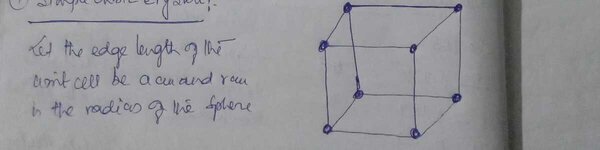 ① Simple cubic crystal:
Let the edge length of the
unit cell be a cm and r cm
is the radius of the sphere